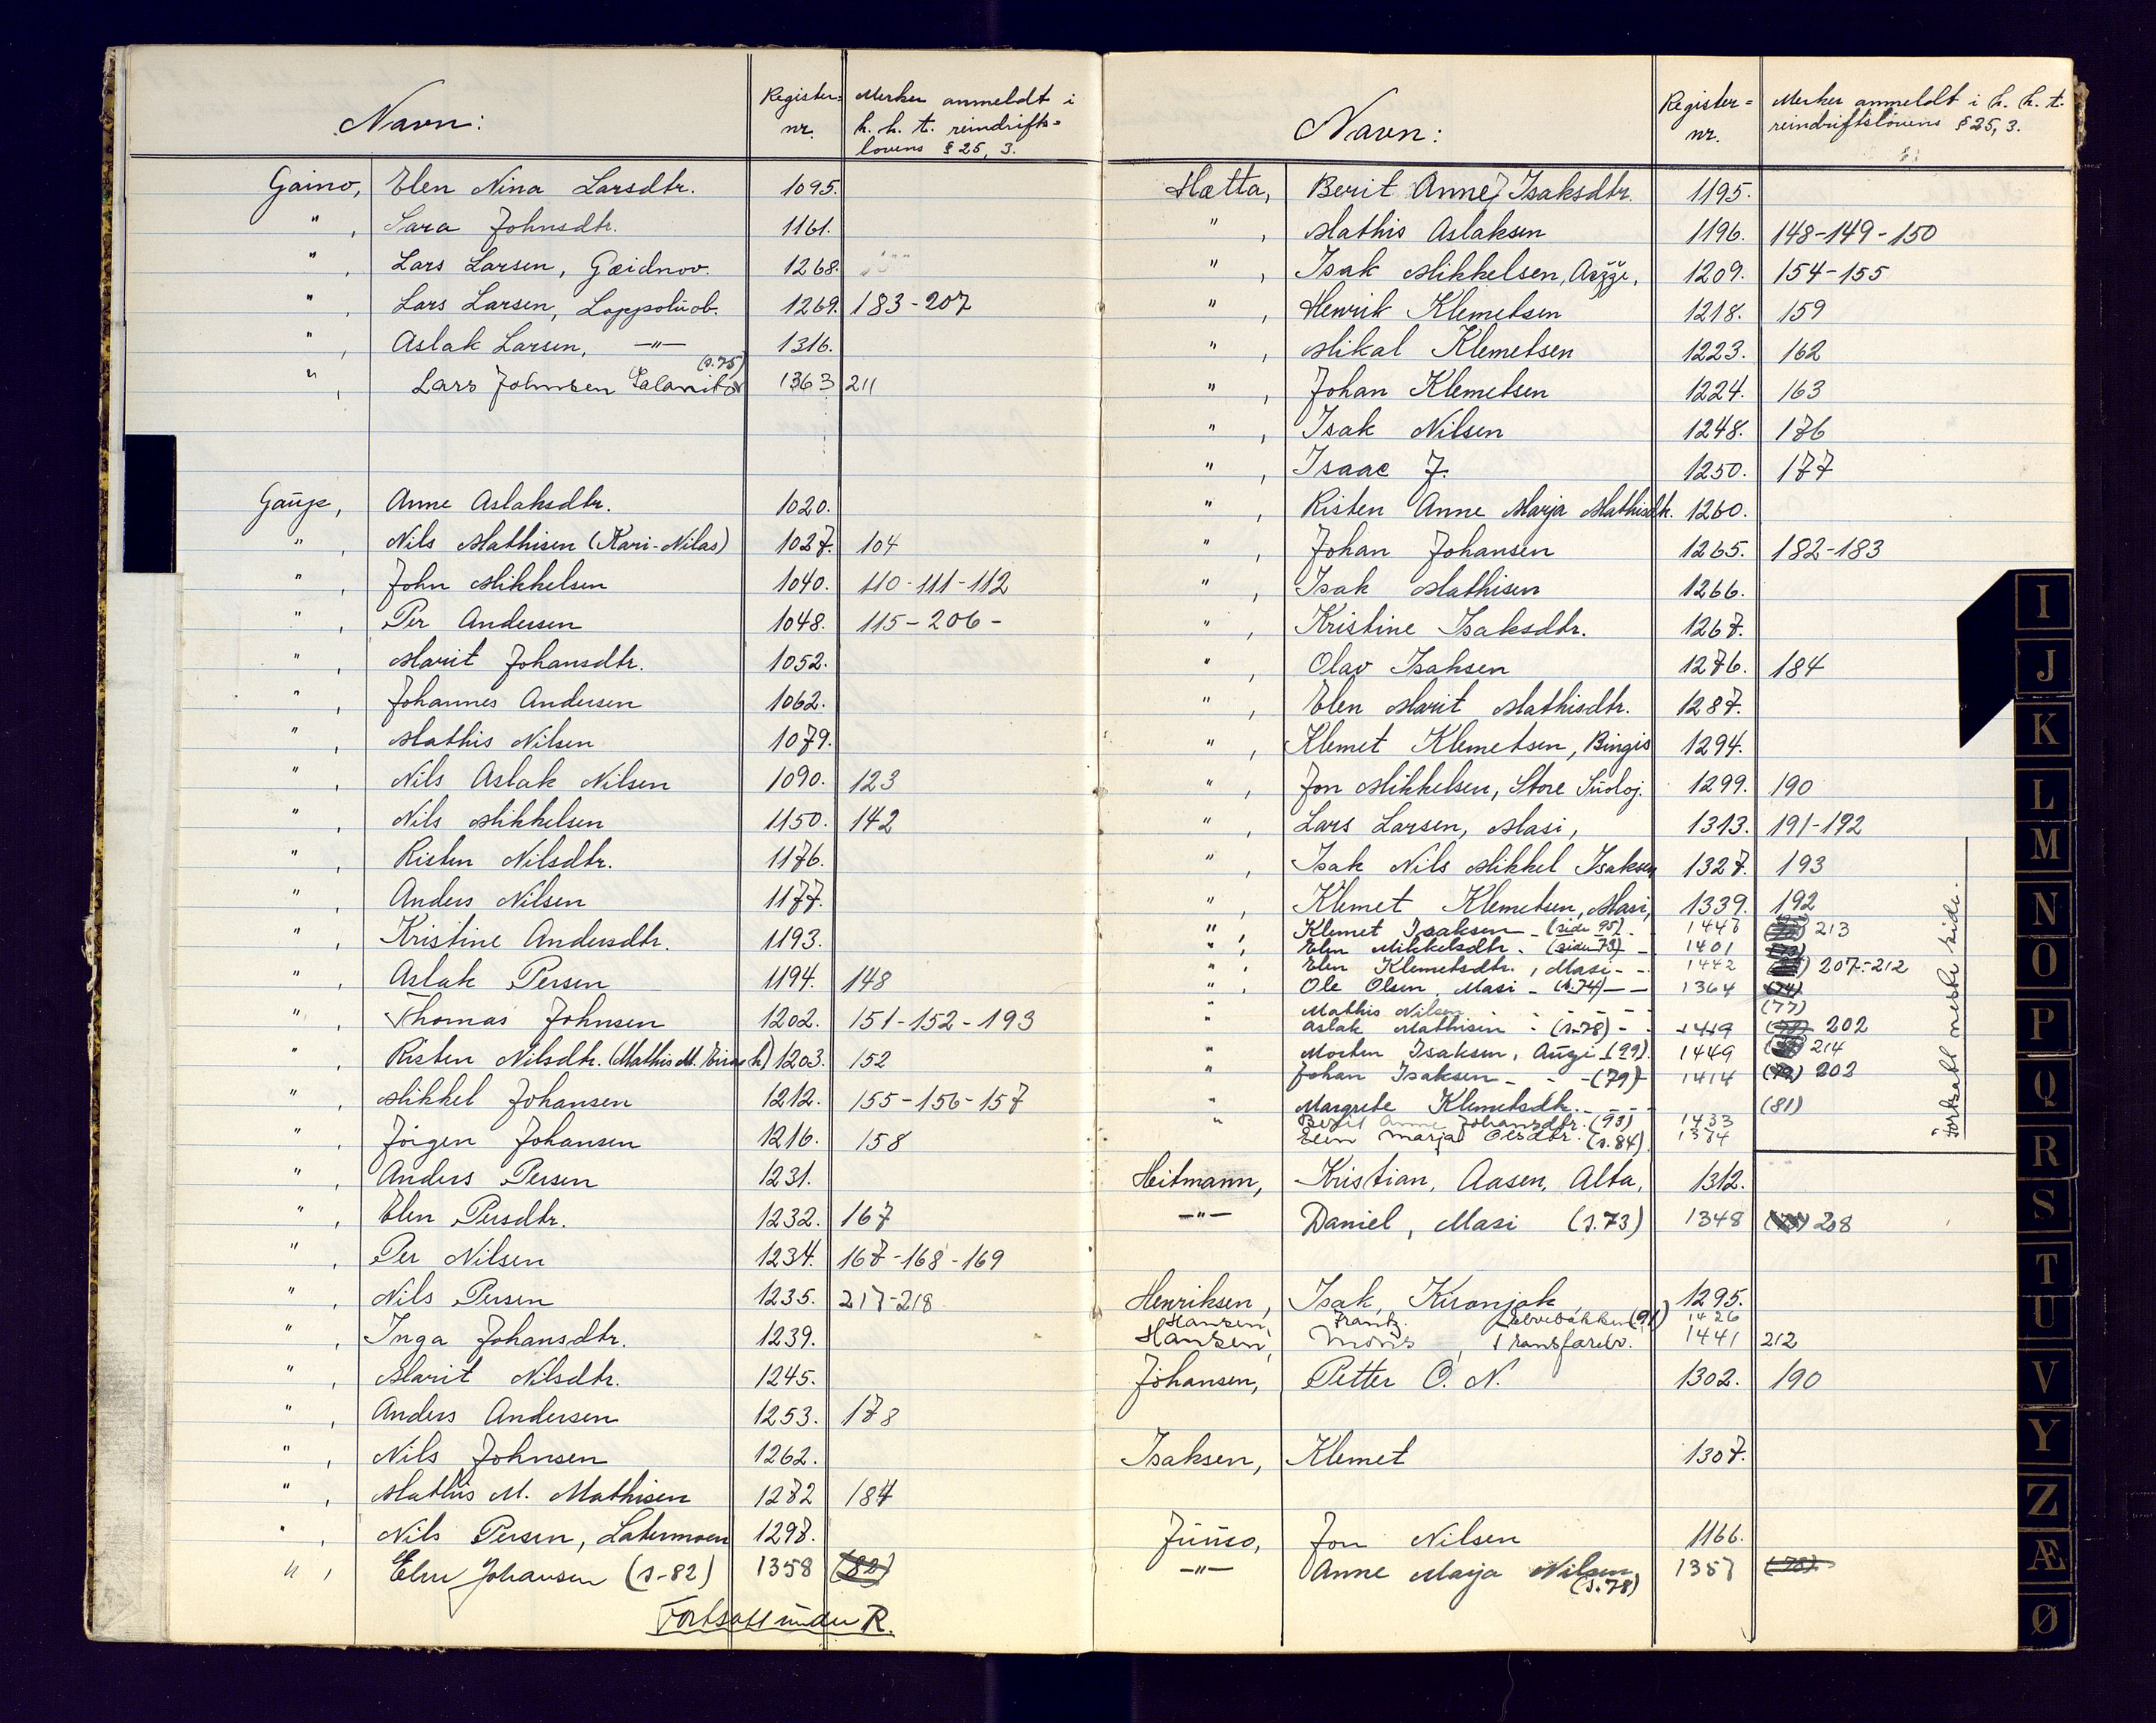 Navn: Register- nr. Merker anmeldt i h. h. t. reindrifts- lovens § 25, 3.
Gaino, Elen Nina Larsdtr. 1095.
" , Sara Johnsdtr. 1161.
" , Lars Larsen, Gæidnov. 1268.
" , Lars Larsen, Loppoluob. 1269. 183-207
" , Aslak Larsen, —"— 1316.
(s.75)
" , Lars Johnsen 1363 211
Gaup, Anne Aslaksdtr. 1020.
" , Nils Mathisen (Kari-Nilas) 1027. 104
" , John Mikkelsen 1040. 110-111-112
" , Per Andersen 1048. 115-206-
" , Marit Johansdtr. 1052.
" , Johannes Andersen 1062.
" , Mathis Nilsen 1079.
" , Nils Aslak Nilsen 1090. 123
" , Nils Mikkelsen 1150. 142
" , Risten Nilsdtr. 1176.
" , Anders Nilsen 1177.
" , Kristine Andersdtr. 1193.
" , Aslak Persen 1194. 148
" , Thomas Johnsen 1202. 151-152-193
" , Risten Nilsdtr. (Mathis M. 1203. 152
" , Mikkel Johansen 1212. 155-156-157
" , Jörgen Johansen 1216. 158
" , Anders Persen 1231.
" , Elen Persdtr. 1232. 167
" , Per Nilsen 1234. 167-168-169
" , Nils Persen 1235. 217-218
" , Inga Johansdtr. 1239.
" , Marit Nilsdtr. 1245.
" , Anders Andersen 1253. 178
" , Nils Johnsen 1262.
" , Mathis M. Mathisen 1272 184
" , Nils Persen, Latermoen 1297.
" , Elen Johansen (s-82) 1358 (82)
Fortsatt under R.
Navn: Register- nr. Merker anmeldt i h. h. t. reindriftslovens § 25, 3.
Hætta, Berit Anne Isaksdtr. 1195.
" , Mathis Aslaksen 1196. 148-149-150
" , Isak Mikkelsen, 1209. 154-155
" , Henrik Klemetsen 1218. 159
" , Mikal Klemetsen 1223. 162
" , Johan Klemetsen 1224. 163
" , Isak Nilsen 1248. 176
" , Isaac J. 1250. 177
" , Risten Anne Marja Mathisdtr. 1260.
" , Johan Johansen 1265. 182-183
" , Isak Mathisen 1266.
" , Kristine Isaksdtr. 1267.
" , Olav Isaksen 1276. 184
" , Elen Marit Mathisdtr. 1287.
" , Klemet Klemetsen, Bingis 1294.
" , Jon Mikkelsen, Store Suoloj. 1299. 190
" , Lars Larsen, Masi, 1313. 191-192
" , Isak Nils Mikkel Isaksen 1327. 193
" , Klemet Klemetsen, Masi, 1339. 192
" , Klemet Isaksen - (side 95) - 1447 213
" , Elen Mikkelsdtr. - (side 73) - 1401
" , Elen Klemetsdtr., Masi - - 1442 207-212
" , Ole Olsen, Masi - (s.74) - - 1364 (74)
" Mathis Nilsen - - - - (77)
" Aslak Mathisen - (s-78) - - 1419 202
" Morten Isaksen, (99) 1449 214
" Johan Isaksen - - - (79) - 1414 (79) 202
" Margrete Klemetsdtr. - - - (81)
" Berit Anne Johansdtr. (93) 1433
Elen Marja Olsdtr. (s.84) 1374
Fortsatt neste side.
Heitmann, Kristian, Aasen, Alta, 1312.
—"— Daniel, Masi (s.73) 1348 208
Henriksen, Isak, 1295.
Hansen, Frantz. Elvebakken (91) 1426
Hansen, Mons, 1441 212
Johansen, Petter O. N. 1302. 190
Isaksen, Klemet 1307.
Juuso, Jon Nilsen 1166.
—"— Anne Marja Nilsen 1357 (78)
(s.78)
I
J
K
L
M
N
O
P
Q
R
S
T
U
V
Y
Z
Æ
Ø